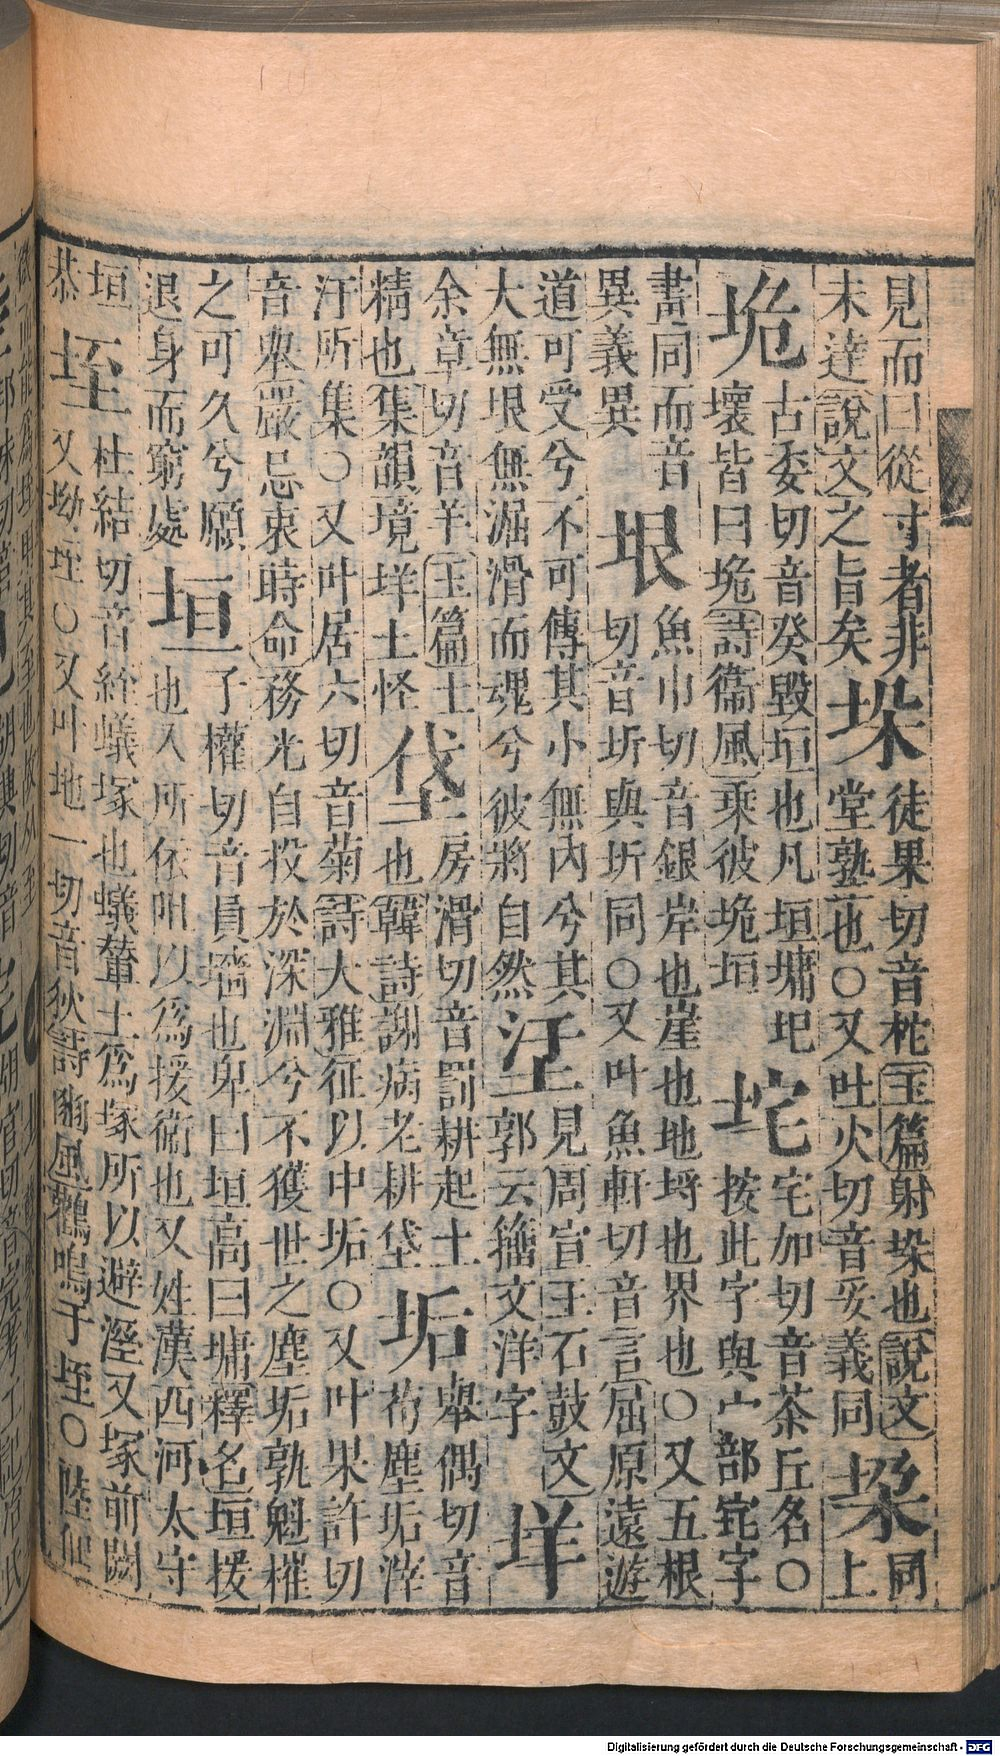 見而曰從寸者非
未達說文之旨矣
垛
徒果切音柁玉篇射垛也說文
堂塾也○又吐火切音妥義同
垜
同
上
垝
古委切音癸毀垣也凡垣墉圮
壞皆曰垝詩衞風乘彼垝垣
垞
宅加切音茶丘名○
按此字與宀部宅字
畫同而音
異義異
垠
魚巾切音銀岸也崖也地垺也界也○又五根
切音垳與圻同○又叶魚軒切音言屈原遠遊
道可受兮不可傳其小無內兮其
大無垠無淈滑而魂兮彼將自然
汧
二見周宣王石鼓文
郭云籒文洋字
垟
余章切音羊玉篇土
精也集韻境垟土怪
垡
房滑切音罰耕起土
也韓詩謝病老耕垡
垢
舉偶切音
茍塵垢滓
汙所集○又叶居六切音菊詩大雅征以中垢○又叶果許切
音椇嚴忌哀時命務光自投於深淵兮不獲世之塵垢孰魁摧
之可久兮願
退身而窮處
垣
于權切音員墻也卑曰垣高曰墉釋名垣援
也人所依阻以爲援衞也又姓漢西河太守
垣
恭
垤
杜結切音絰蟻塚也蟻輂土爲塚所以避溼又塚前闕
又坳垤○又叶地一切音狄詩豳風鸛鳴于垤○陸佃
Digitalisierung gefördert durch die Deutsche Forschungsgemeinschaft - DFG